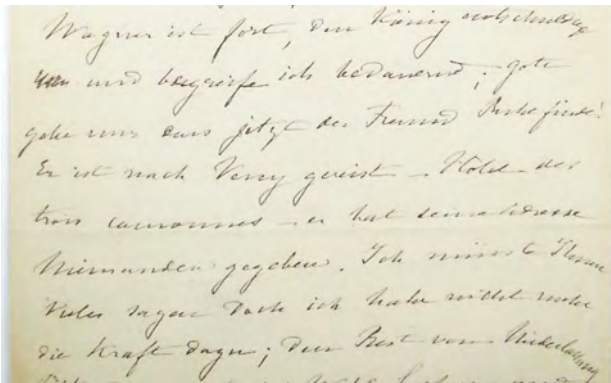 Wagner ist fort, den König entschuldige
und begreife ich bedauernd; Gott
gebe nur dass jetzt der Freund Ruhe finde!
Er ist nach Vevey gereist – Hôtel des
trois couronnes – er hat seine Adresse
Niemanden gegeben. Ich müsste Ihnen
Vieles sagen doch ich habe nicht mehr
die Kraft dazu; den Rest von